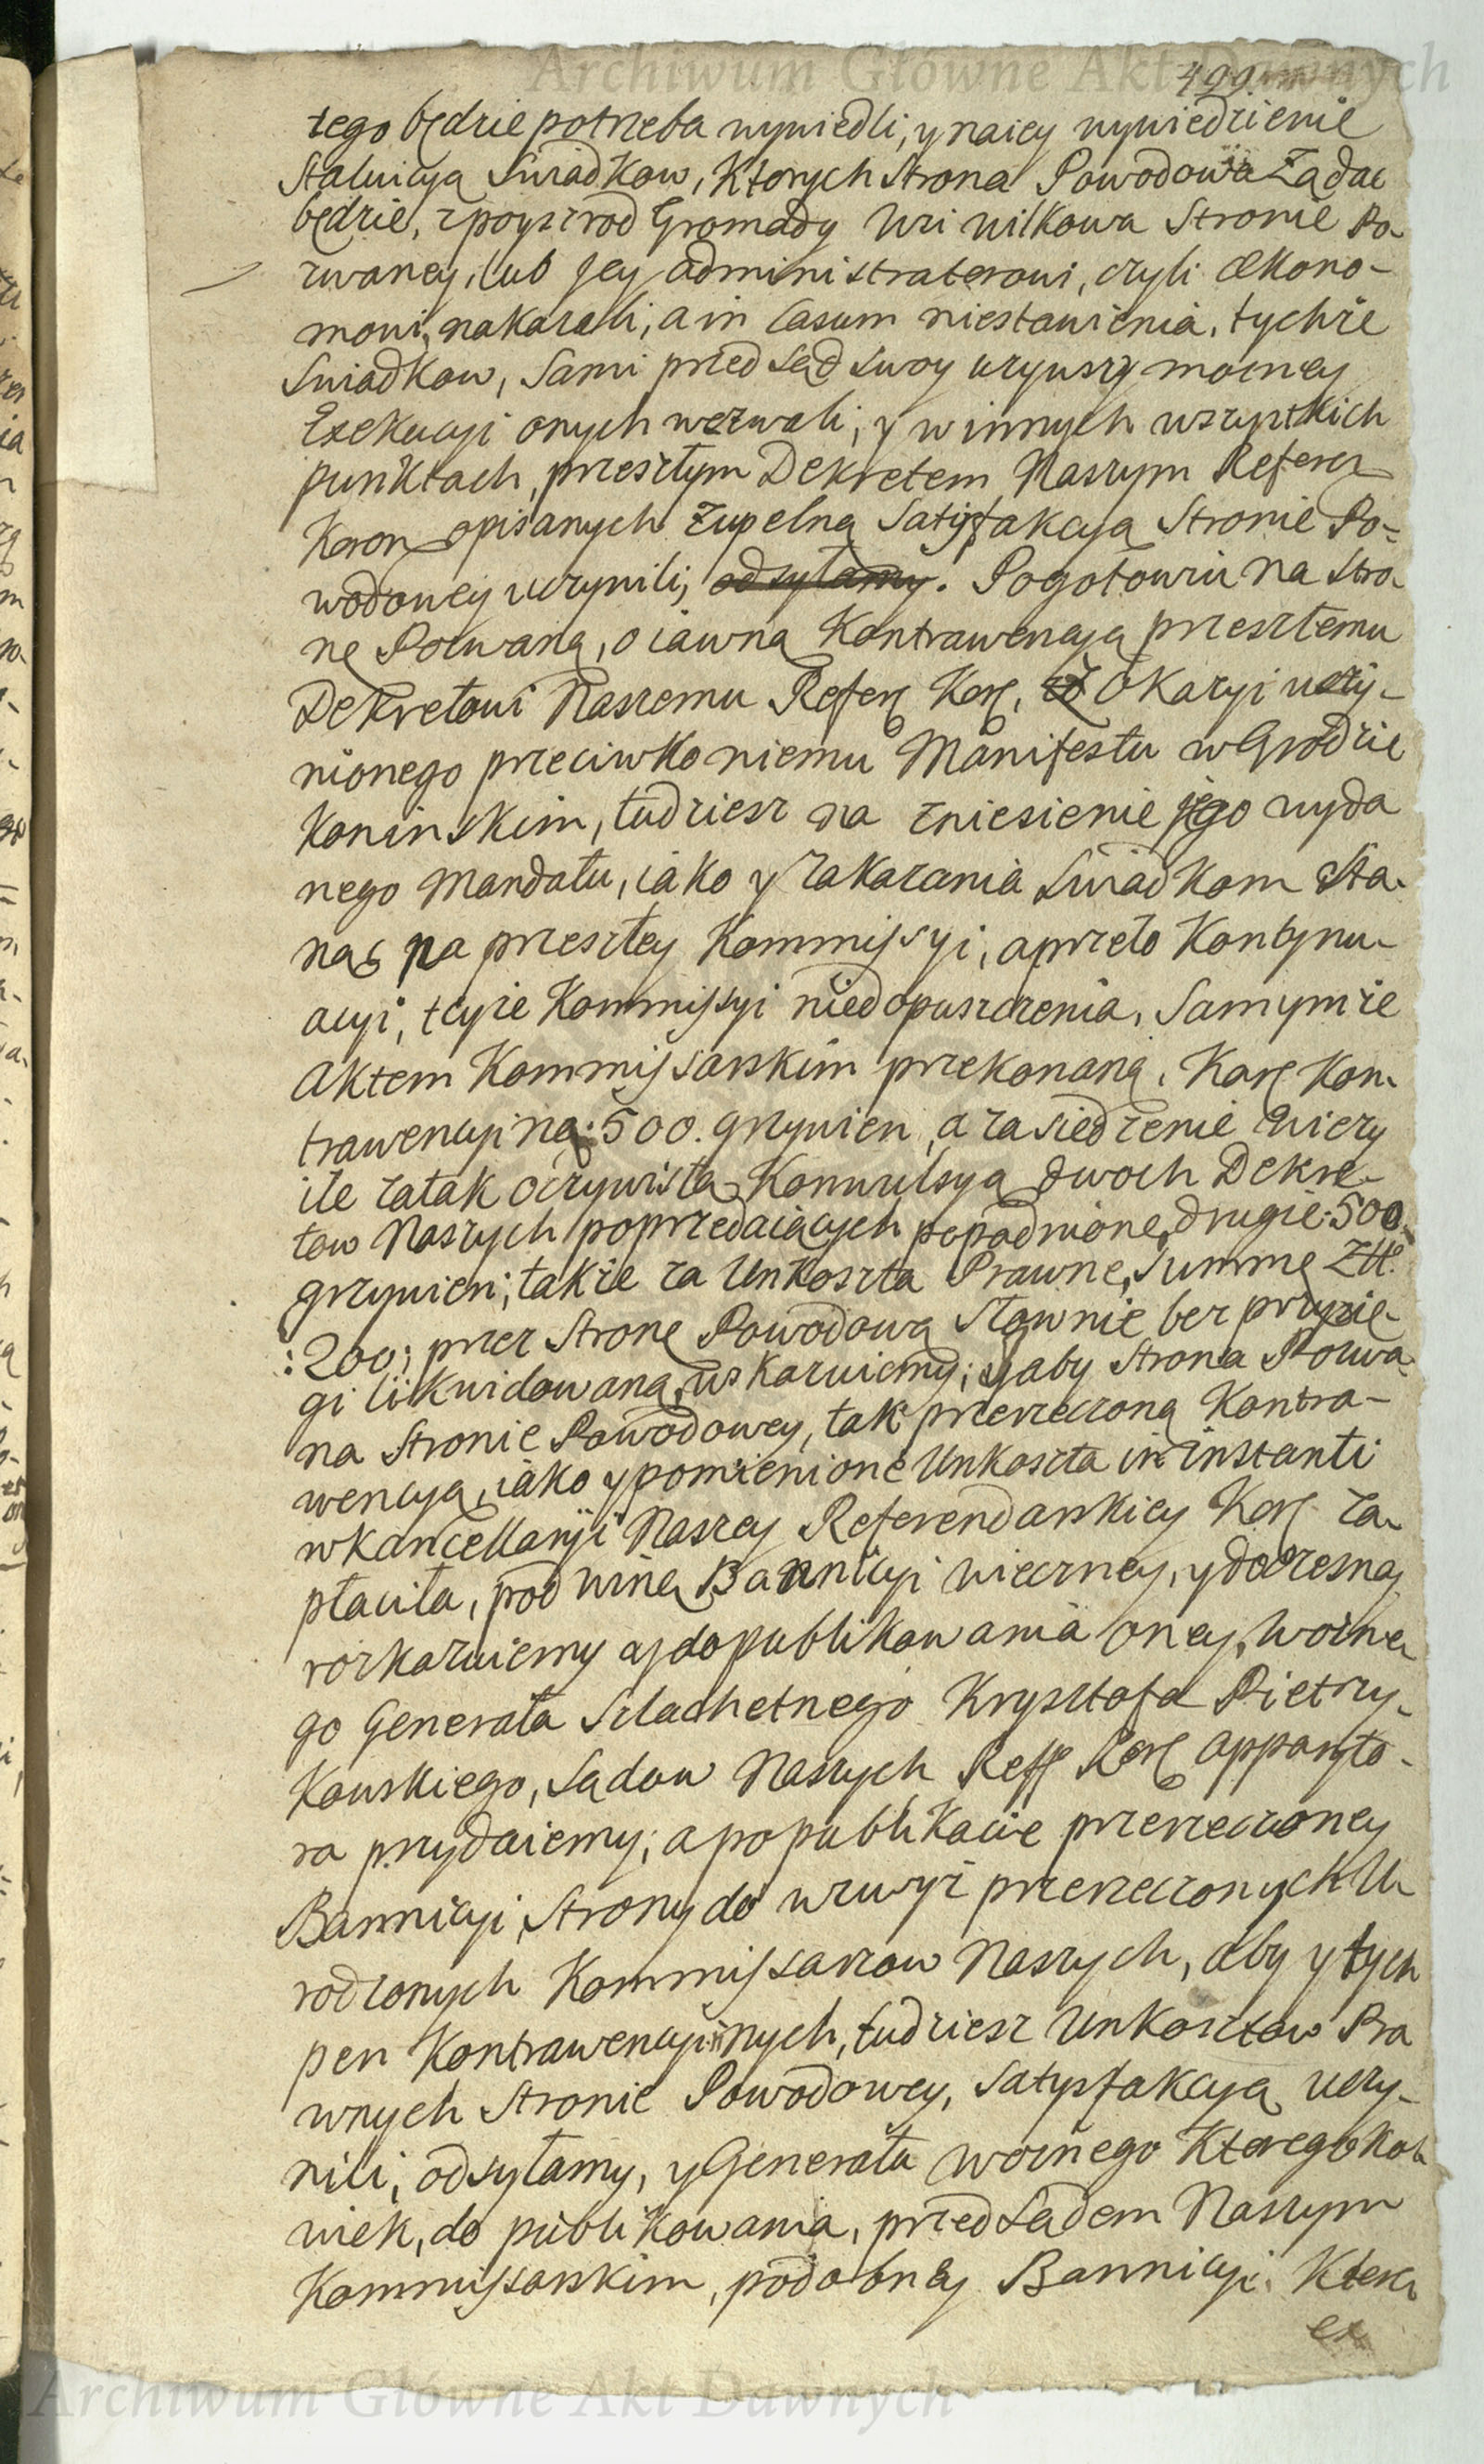 Archiwum Główne Akt Dawnych
499
tego będzie potrzeba wywiedli, y naiey wywiedzienie
Staluicya Swiadkow, Ktorych Strona Powodowa Ządac
będzie, zpoyszrod Gromady Wsi Wilkowa Stronie Po-
zwaney, lub Jey administratorowi, czyli œkono-
mowi, nakazali, a in Casum niestawienia, tychże
Swiadkow, Sami przed Sąd Swoy uzywszy mocney
Exekucyi onych wezwali, y w innych wszystkich
punktach, przeszłym Dekretem Naszym Referen
Koron opisanych Zupełną Satisfakcyą Stronie Po-
wodowey uczynili, odsyłamy. Pogotowiu na Stro-
nę Pozwaną, o iawną Kontrawencyą przeszłemu
Dekretowi Naszemu Refer Kor, z Okazyi uczy-
nionego przeciwko niemu Manifestu w Grodzie
Koninskim, tudziesz na zniesienie jego wyda
nego Mandatu, iako y Zakazania Swiadkom Sta-
nąc na przeszłey Kommissyi, a przeto Kontynu-
acyi, teyże Kommissyi niedopuszczenia, Samymże
Aktem Kommissarskim przekonaną, Karę Kon-
trawencyiną: 500. grzywien, a za siedzenie Wiezy
ile za tak oczywistą Konwulsyą dwoch Dekre-
tow Naszych poprzedaiących popadnione, drugie: 500.
grzywien; także za Unkoszta Prawne, Summę Złł.
:200; przez Stronę Powodową Słownie bez przysię-
gi likwidowaną, wskazuiemy; y aby Strona Pozwa-
na Stronie Powodowey, tak przerzeczoną Kontra-
wencyą, iako y pomienione Unkoszta in instanti
w Kancellaryi Naszey Referendarskiey Kor za-
płaciła, pod winą Bannicyi wieczney, y doczesney
rozkazuiemy a do publikowania oney, Woźne
go Generała Szlachetnego Krysztofa Pietrzy-
kowskiego, Sądow Naszych Reff Kor apparyto-
ra przydaiemy; a po publikacie przerzeczoney
Bannicyi, Strony do wzwyż przerzeczonych U-
rodzonych Kommissarzow Naszych, aby y tych
pen Kontrawencyinych, tudziesz Unkosztow Pra
wnych Stronie Powodowey, Satysfakcyą uczy-
nili, odsyłamy, y Generała woźnego Ktoregokol
wiek, do publikowania, przed Sądem Naszym
Kommissarskim, podobney Bannicyi. Ktera
ex
Archiwum Główne Akt Dawnych